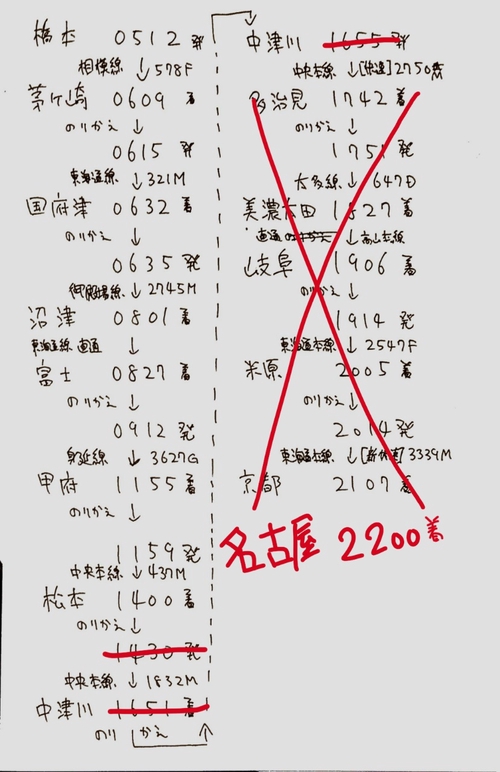 橋本 0512発
相模線 ↓578F
茅ヶ崎 0609着
のりかえ ↓
0615発
東海道線 ↓321M
国府津 0632着
のりかえ ↓
0635発
御殿場線 ↓2745M
沼津 0801着
東海道線 直通 ↓
富士 0827着
のりかえ ↓
0912発
身延線 ↓3627G
甲府 1155着
のりかえ ↓
1159発
中央本線 ↓437M
松本 1400着
のりかえ ↓
1430発
中央本線 ↓1832M
中津川 1651着
のりかえ
中津川 1655発
中央本線 ↓[快速]2750
多治見 1742着
のりかえ ↓
1751発
太多線 ↓647D
美濃太田 1827着
直通 ↓高山本線
岐阜 1906着
のりかえ ↓
1914発
東海道本線 ↓2547F
米原 2005着
のりかえ ↓
2014発
東海道本線 ↓[新快速]3339M
京都 2107着
名古屋 2200着